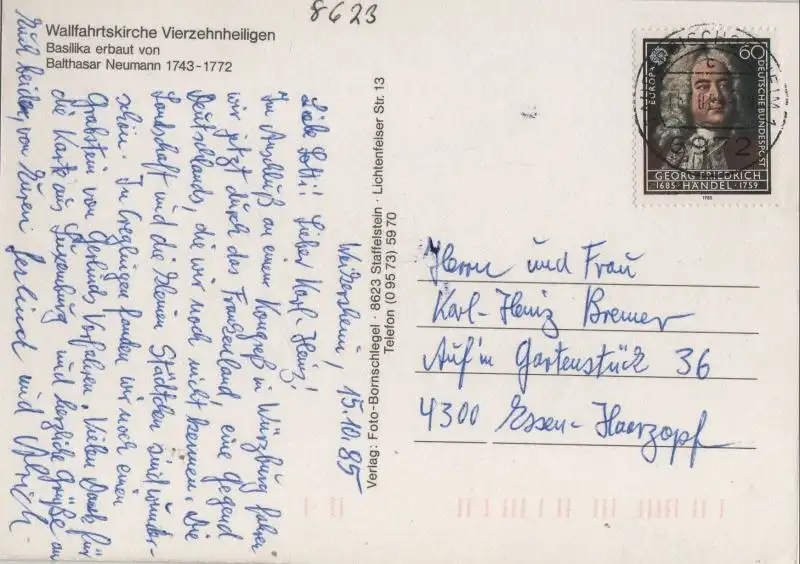 8623
Wallfahrtskirche Vierzehnheiligen
Basilika erbaut von
Balthasar Neumann 1743-1772
Weikersheim, 15.10.85
Liebe Lotti! Lieber Karl-Heinz!
Im Anschluß an einen Kongreß in Würzburg fahren
wir jetzt durch das Frankenland, eine Gegend
Deutschlands, die wir noch nicht kennen. Die
Landschaft und die kleinen Städtchen sind wunder-
schön. In Creglingen fanden wir noch einen
Grabstein von Gerlinds Vorfahren. Vielen Dank für
die Karte aus Luxemburg und herzliche Grüße an
Euch beiden, von Euren Gerlind und Ulrich.
Verlag: Foto-Bornschlegel · 8623 Staffelstein · Lichtenfelser Str. 13
Telefon (0 95 73) 59 70
EUROPA
60
DEUTSCHE BUNDESPOST
GEORG FRIEDRICH
1685 · HÄNDEL · 1759
1985
Herrn und Frau
Karl-Heinz Bremer
Auf'm Gartenstück 36
4300 Essen-Haarzopf